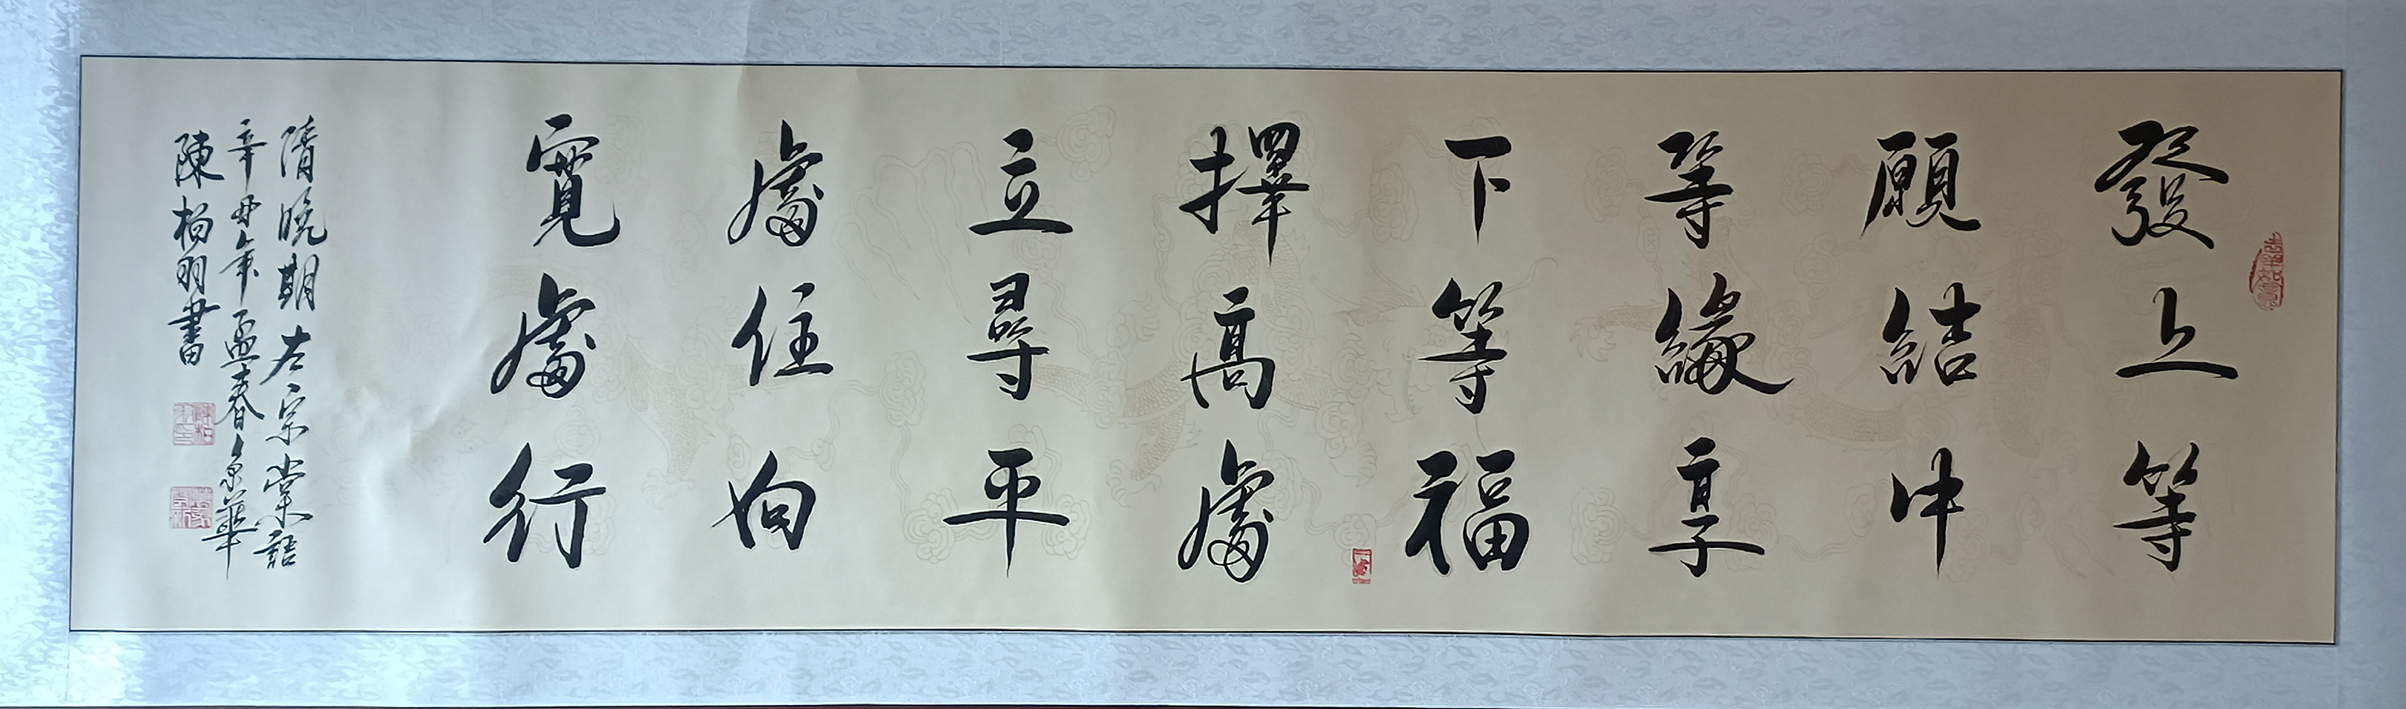 發上等
願結中
等緣享
下等福
擇高處
立尋平
處住向
寬處行
清晚期左宗棠語
辛丑年孟春京華
陳柏羽書